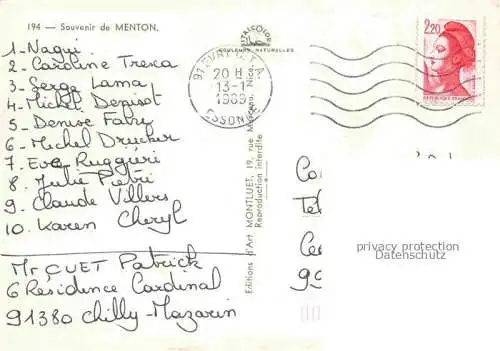 194 — Souvenir de MENTON.
1- Nagui
2- Caroline Tresca
3- Serge Lama
4- Michel Denisot
5- Denise Fabre
6- Michel Drucker
7- Eve Ruggiéri
8- Julie Pietri
9- Claude Villers
10- Karen Cheryl
Mr CUET Patrick
6 Résidence Cardinal
91380 Chilly-Mazarin
COULEURS NATURELLES
Editions d'Art MONTLUET, 19, rue Marceau, Nice.
Reproduction interdite
91 EVRY
20 H
13-1
1989
ESSONNE
2,20
privacy protection
Datenschutz